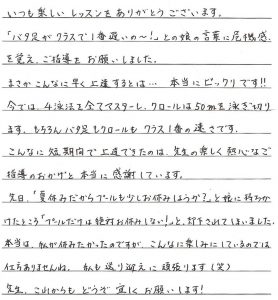 いつも楽しいレッスンをありがとうございます。
「バタ足がクラスで1番遅いの～!」との娘の言葉に危機感
を覚え、ご指導をお願いしました。
まさかこんなに早く上達するとは… 本当にビックリです!!
今では、4泳法を全てマスターし、クロールは50mを泳ぎ切り
ます。もちろんバタ足もクロールもクラス1番の速さです。
こんなに短期間で上達できたのは、先生の楽しく熱心なご
指導のおかげと本当に感謝しています。
先日、「夏休みだからプールも少しお休みしようか?」と娘に持ちか
けたところ「プールだけは絶対お休みしない!」と、断言されてしまいました。
本当は、私が休みたかったのですが、こんなに楽しみにしているのでは
仕方ありませんね。私も送り迎えに頑張ります(笑)
先生、これからもどうぞ宜しくお願いします!